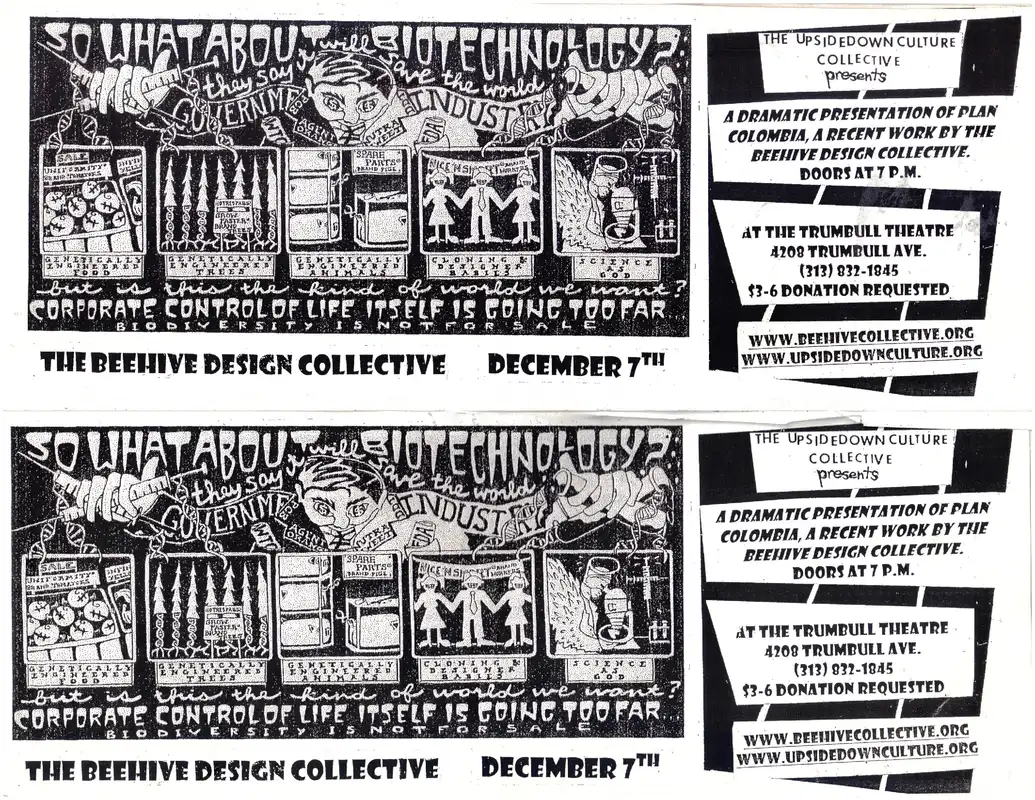 SO WHAT ABOUT BIOTECHNOLOGY?
they say it will save the world
GOVERNME
INDUST
FDA
SALE
UNIFORMITY
BRAND TOMATOES
NO TRESPASS
GROW
FASTER
BRAND
SPARE
PARTS
BRAND PIGS
NICE 'N S
WORKERS
GENETICALLY
ENGINEERED
FOOD
GENETICALLY
ENGINEERED
TREES
GENETICALLY
ENGINEERED
ANIMALS
CLONING &
DESIGNER
BABIES
SCIENCE
AS
GOD
but is this the kind of world we want?
CORPORATE CONTROL OF LIFE ITSELF IS GOING TOO FAR...
BIODIVERSITY IS NOT FOR SALE
THE BEEHIVE DESIGN COLLECTIVE DECEMBER 7TH
THE UPSIDEDOWN CULTURE
COLLECTIVE
presents
A DRAMATIC PRESENTATION OF PLAN
COLOMBIA, A RECENT WORK BY THE
BEEHIVE DESIGN COLLECTIVE.
DOORS AT 7 P.M.
AT THE TRUMBULL THEATRE
4208 TRUMBULL AVE.
(313) 832-1845
$3-6 DONATION REQUESTED
WWW.BEEHIVECOLLECTIVE.ORG
WWW.UPSIDEDOWNCULTURE.ORG
SO WHAT ABOUT BIOTECHNOLOGY?
they say it will save the world
GOVERNME
INDUST
FDA
SALE
UNIFORMITY
BRAND TOMATOES
NO TRESPASS
GROW
FASTER
BRAND
SPARE
PARTS
BRAND PIGS
NICE 'N S
WORKERS
GENETICALLY
ENGINEERED
FOOD
GENETICALLY
ENGINEERED
TREES
GENETICALLY
ENGINEERED
ANIMALS
CLONING &
DESIGNER
BABIES
SCIENCE
AS
GOD
but is this the kind of world we want?
CORPORATE CONTROL OF LIFE ITSELF IS GOING TOO FAR...
BIODIVERSITY IS NOT FOR SALE
THE BEEHIVE DESIGN COLLECTIVE DECEMBER 7TH
THE UPSIDEDOWN CULTURE
COLLECTIVE
presents
A DRAMATIC PRESENTATION OF PLAN
COLOMBIA, A RECENT WORK BY THE
BEEHIVE DESIGN COLLECTIVE.
DOORS AT 7 P.M.
AT THE TRUMBULL THEATRE
4208 TRUMBULL AVE.
(313) 832-1845
$3-6 DONATION REQUESTED
WWW.BEEHIVECOLLECTIVE.ORG
WWW.UPSIDEDOWNCULTURE.ORG